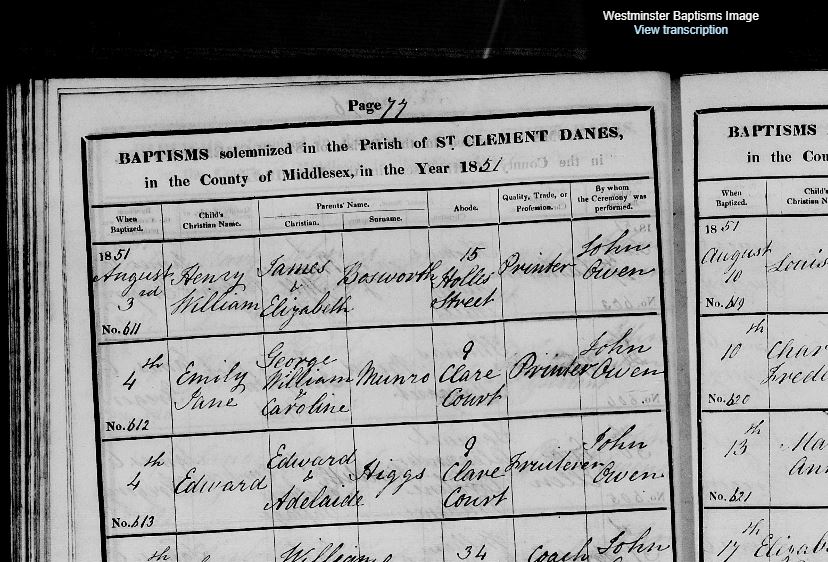 Westminster Baptisms Image
View transcription
Page 77
BAPTISMS solemnized in the Parish of ST. CLEMENT DANES,
in the County of Middlesex, in the Year 1851
When Baptized.
Child's Christian Name.
Parents' Name.
Christian.
Surname.
Abode.
Quality, Trade, or Profession.
By whom the Ceremony was performed.
1851
August
3rd
No. 611
Henry
William
James
&
Elizabeth
Bosworth
15
Hollis
Street
Printer
John
Owen
4th
No. 612
Emily
Jane
George
William
&
Caroline
Munro
9
Clare
Court
Printer
John
Owen
4th
No. 613
Edward
Edward
&
Adelaide
Higgs
9
Clare
Court
Fruiterer
John
Owen
th
William
34
Coach
John
BAPTISMS
in the Cou
When Baptized.
Child's
Christian N
1851
August
10
No. 619
Louis
10th
No. 620
Char
Frede
13th
No. 621
Ma
Ann
17th
Elizab